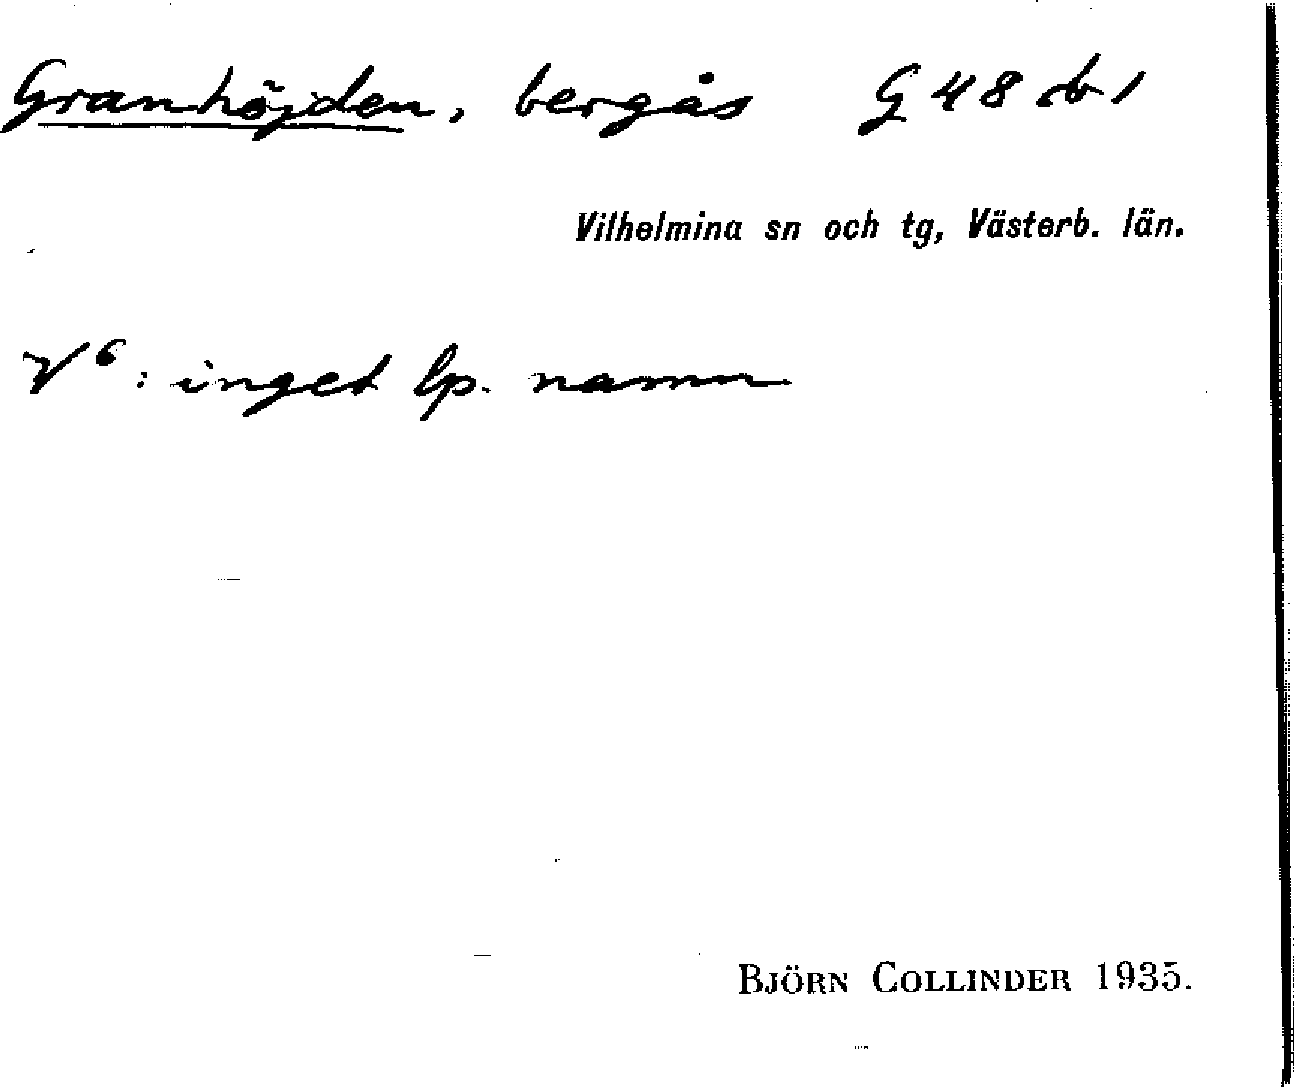 Granhöjden, bergås G 48 b 1
Vilhelmina sn och tg, Västerb. län.
V⁶: inget lp. namn
BJÖRN COLLINDER 1935.